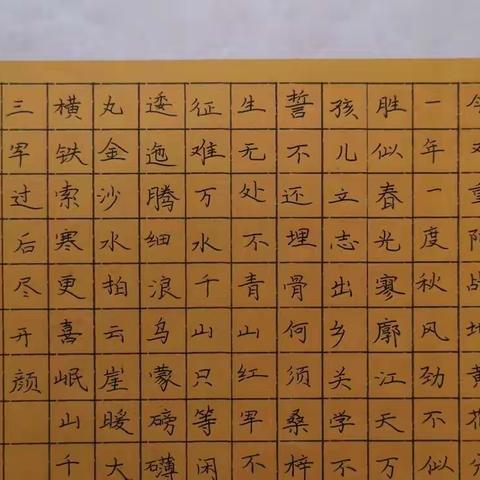 今又重阳战地黄花分
一年一度秋风劲不似
胜似春光寥廓江天万
孩儿立志出乡关学不
誓不还埋骨何须桑梓
生无处不青山红军不
征难万水千山只等闲
逶迤腾细浪乌蒙磅礴
丸金沙水拍云崖暖大
横铁索寒更喜岷山千
三军过后尽开颜